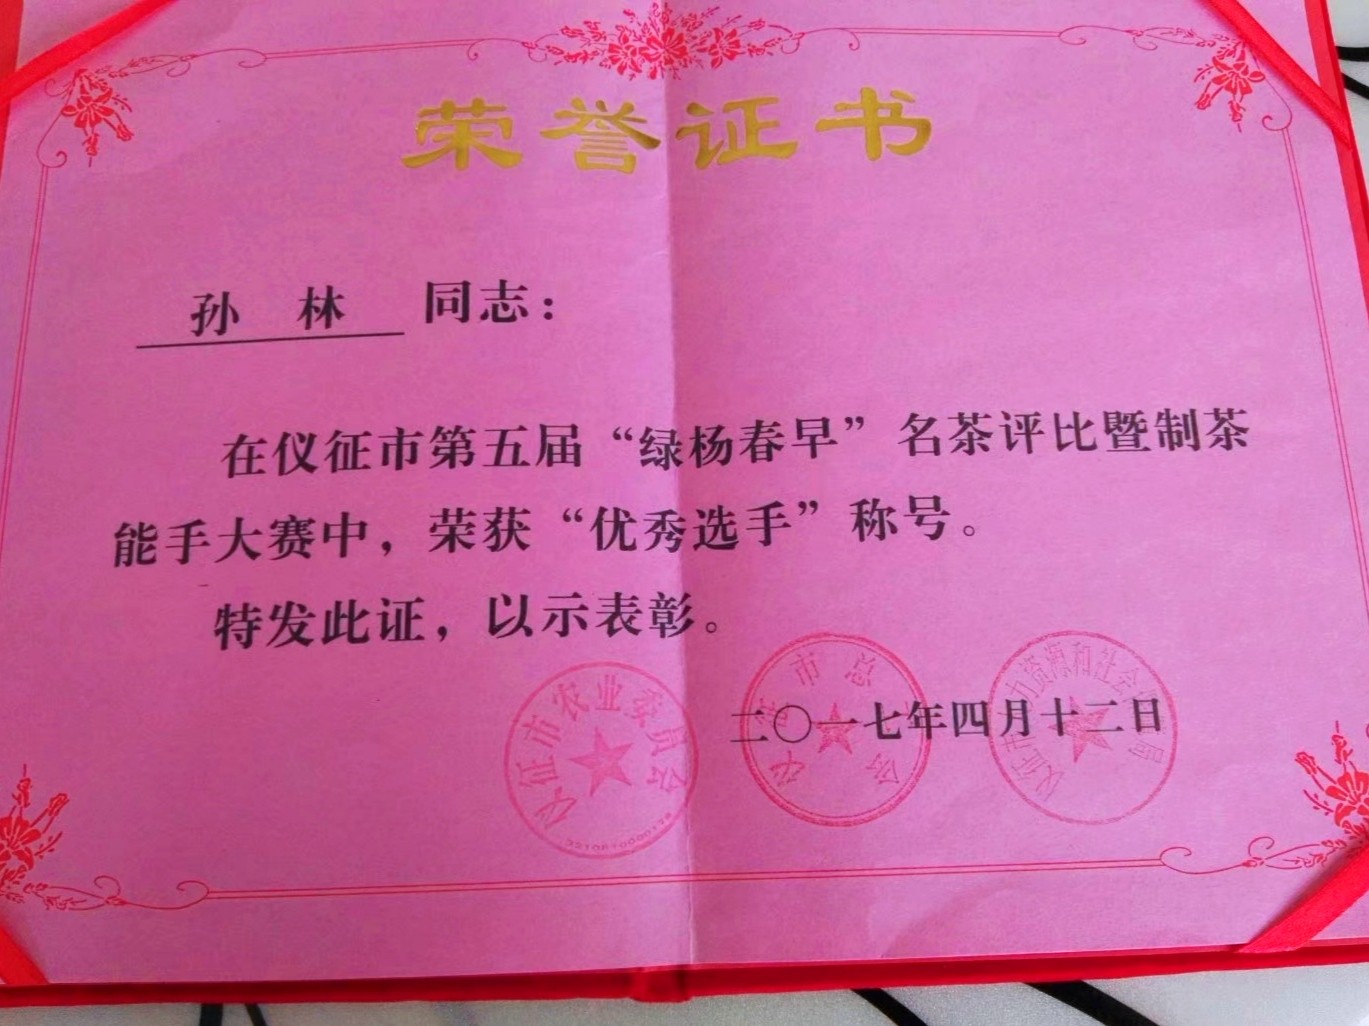 荣誉证书
孙 林 同志：
在仪征市第五届“绿杨春早”名茶评比暨制茶
能手大赛中，荣获“优秀选手”称号。
特发此证，以示表彰。
二〇一七年四月十二日
仪征市农业委员会
仪征市总 会
仪征市 力资源和社会 局